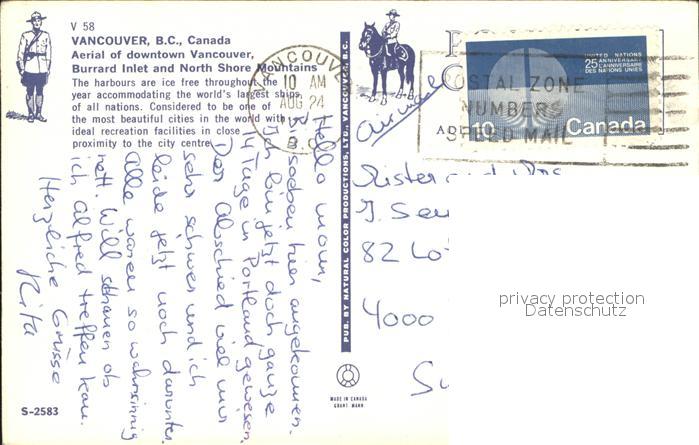 V 58
VANCOUVER, B.C., Canada
Aerial of downtown Vancouver,
Burrard Inlet and North Shore Mountains
The harbours are ice free throughout the
year accommodating the world's largest ships
of all nations. Considered to be one of
the most beautiful cities in the world with
ideal recreation facilities in close
proximity to the city centre.
VANCOUVER
10 AM
AUG 24
B.C.
Hello mour,
Bin soeben hier angekommen.
Ich bin jetzt doch ganze
14 Tage in Portland gewesen.
Der Abschied viel mir
sehr schwer und ich
leide jetzt noch darunter.
Alle waren so wahnsinnig
nett. Will schauen ob
ich Alfred treffen kan.
Herzliche Grüsse
Rita
S-2583
PUB. BY NATURAL COLOR PRODUCTIONS, LTD., VANCOUVER, B.C.
MADE IN CANADA
GRANT MANN
UNITED NATIONS
25 ANNIVERSARY
E ANNIVERSAIRE
DES NATIONS UNIES
10 Canada
POSTAL ZONE
NUMBERS
SPEED MAIL
air mail
82
4000
privacy protection
Datenschutz